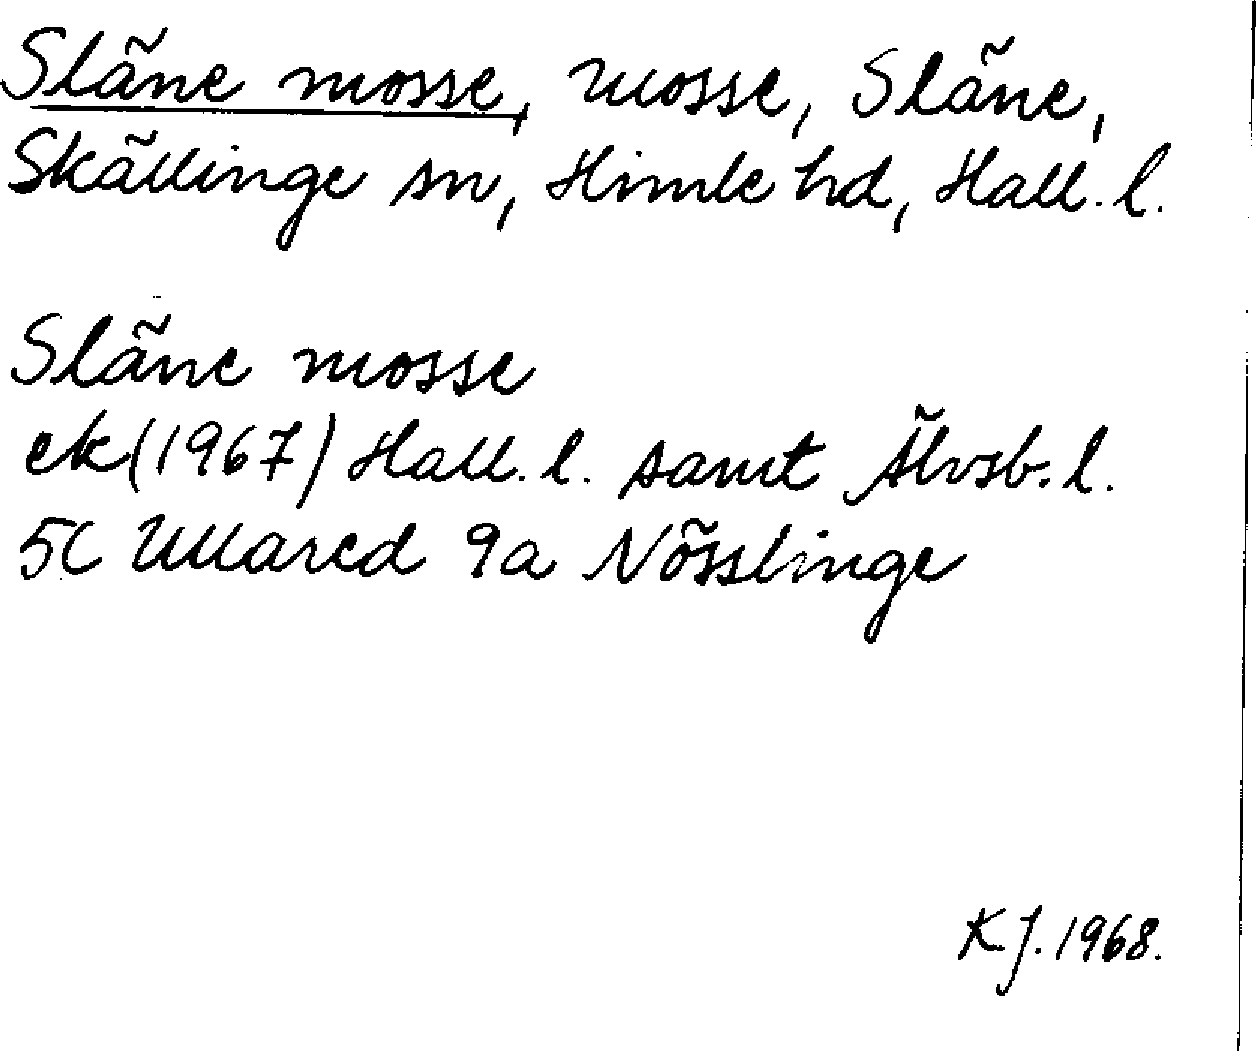 Släne mosse, mosse, Släne,
Skällinge sn, Himle hd, Hall. l.
Släne mosse
ek (1967) Hall. l. samt Älvsb. l.
5C Ullared 9a Nösslinge
KJ. 1968.